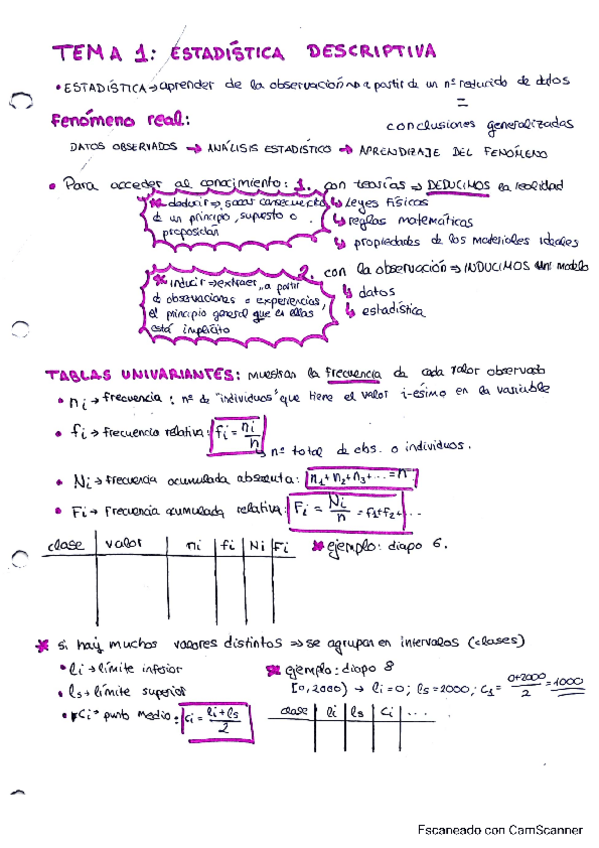 TEMA 1: ESTADÍSTICA DESCRIPTIVA
• ESTADÍSTICA → aprender de la observación → a partir de un nº reducido de datos
=
conclusiones generalizadas
Fenómeno real:
DATOS OBSERVADOS → ANÁLISIS ESTADÍSTICO → APRENDIZAJE DEL FENÓMENO
• Para acceder al conocimiento: 1. con teorías ⇒ DEDUCIMOS la realidad
* deducir ⇒ sacar consecuencia de un principio, supuesto o proposición
↳ leyes físicas
↳ reglas matemáticas
↳ propiedades de los materiales ideales
2. con la observación ⇒ INDUCIMOS un modelo
* inducir ⇒ extraer, a partir de observaciones o experiencias, el principio general que en ellas está implícito
↳ datos
↳ estadística
TABLAS UNIVARIANTES: muestran la frecuencia de cada valor observado
• ni → frecuencia: nº de "individuos" que tiene el valor i-ésimo en la variable
• fi → frecuencia relativa: fi = ni/n
↳ nº total de obs. o individuos.
• Ni → frecuencia acumulada absoluta: n1+n2+n3+... = n
• Fi → Frecuencia acumulada relativa: Fi = Ni/n = f1+f2+...
clase | valor | ni | fi | Ni | Fi
* ejemplo: diapo 6.
* si hay muchos valores distintos ⇒ se agrupan en intervalos (clases)
• li → límite inferior
• ls → límite superior
• ci → punto medio: ci = (li+ls)/2
* ejemplo: diapo 8
[0,2000) → li=0; ls=2000; c1= (0+2000)/2 = 1000
clase | li | ls | ci | ...
Escaneado con CamScanner